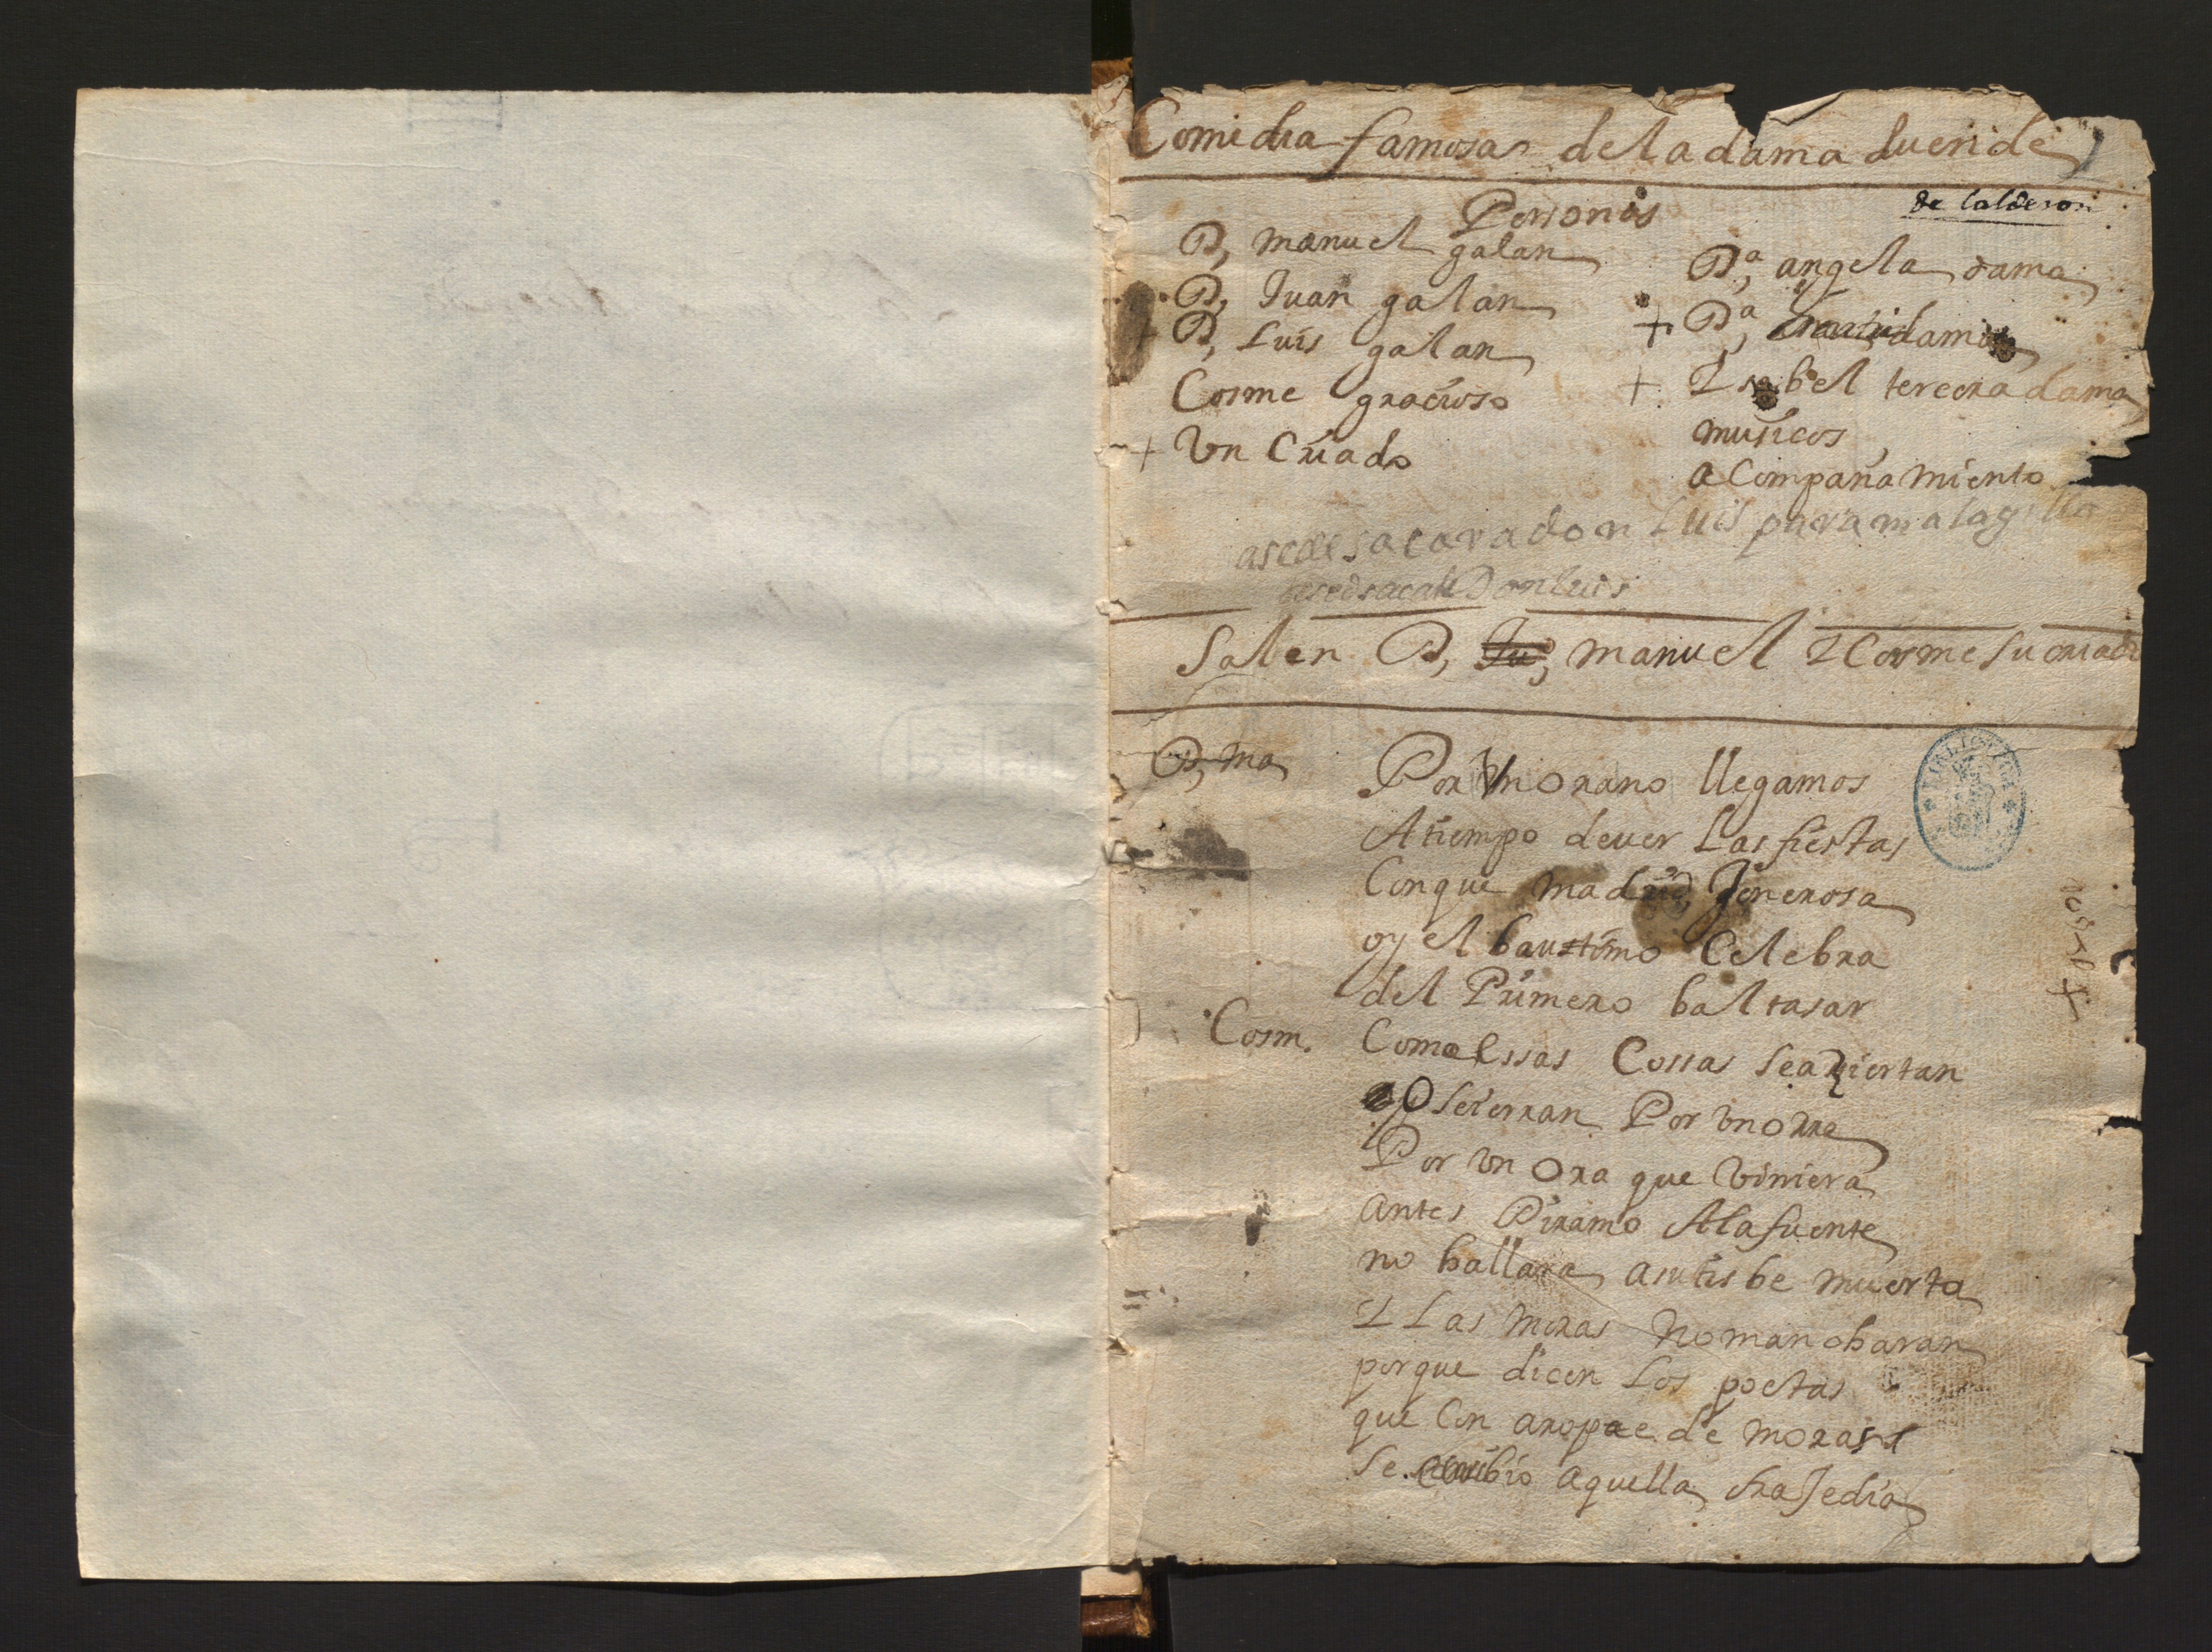 Comidia famosa de la dama duende
de Calderon
Personas
D, manuel galan
D, Juan galan
+ D, Luis galan
Cosme gracioso
+ Vn Criado
D,ª angela dama
+ D,ª dama
+ Isabel tercera dama
musicos
aCompañamiento
asede sacar a don Luis para malag
asedsacar Don luis
Salen D, Ju, manuel Y Cosme su criado
D, Ma
Por Vn ora no llegamos
A tiempo de ver Las fiestas
Con que Madrid, Jenerosa
oy el baustimo Celebra
del Primero baltasar
Cosm.
Como Essas Cossas se aziertan
O se ierran Por vn ora
Por vn Ora que viniera
antes Piramo A la fuente
no hallara a su tisbe muerta
Y Las moras No mancharan
porque dicen Los poetas
que Con arope de moras
se escribio aquella trajedia